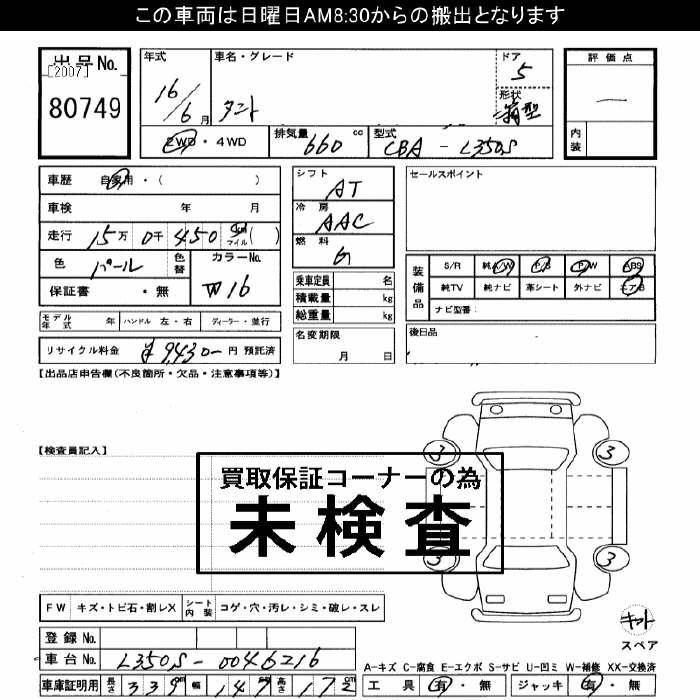 この車両は日曜日AM8:30からの搬出となります
出品No.
[2007]
80749
年式
16/6月
車名・グレード
タント
ドア
5
形状
箱型
2WD・4WD
排気量
660 cc
型式
CBA - L350S
評価点
―
内装
車歴 自家用・( )
車検 年 月
走行 15万 0千 450 Km マイル ( )
色 パール
色替
カラーNo.
W16
保証書 ・無
シフト
AT
冷房
AAC
燃料
G
乗車定員 名
積載量 kg
総重量 kg
セールスポイント
装備品
S/R 純A/W P/S P/W ABS
純TV 純ナビ 革シート 外ナビ エアB
ナビ型番:
モデル年式 年 ハンドル 左・右 ディーラー・並行
名変期限
月 日
後日品
リサイクル料金 ¥9,430- 円 預託済
【出品店申告欄(不良箇所・欠品・注意事項等)】
【検査員記入】
3 3
買取保証コーナーの為
未検査
3 3
FW キズ・トビ石・割レX シート内装 コゲ・穴・汚レ・シミ・破レ・スレ
キット
スペア
登録No.
車台No. L350S-0046216
A-キズ C-腐食 E-エクボ S-サビ U-凹ミ W-補修 XX-交換済
車庫証明用 長さ 339 cm 幅 147 高さ 172
工具 有・無 ジャッキ 有・無